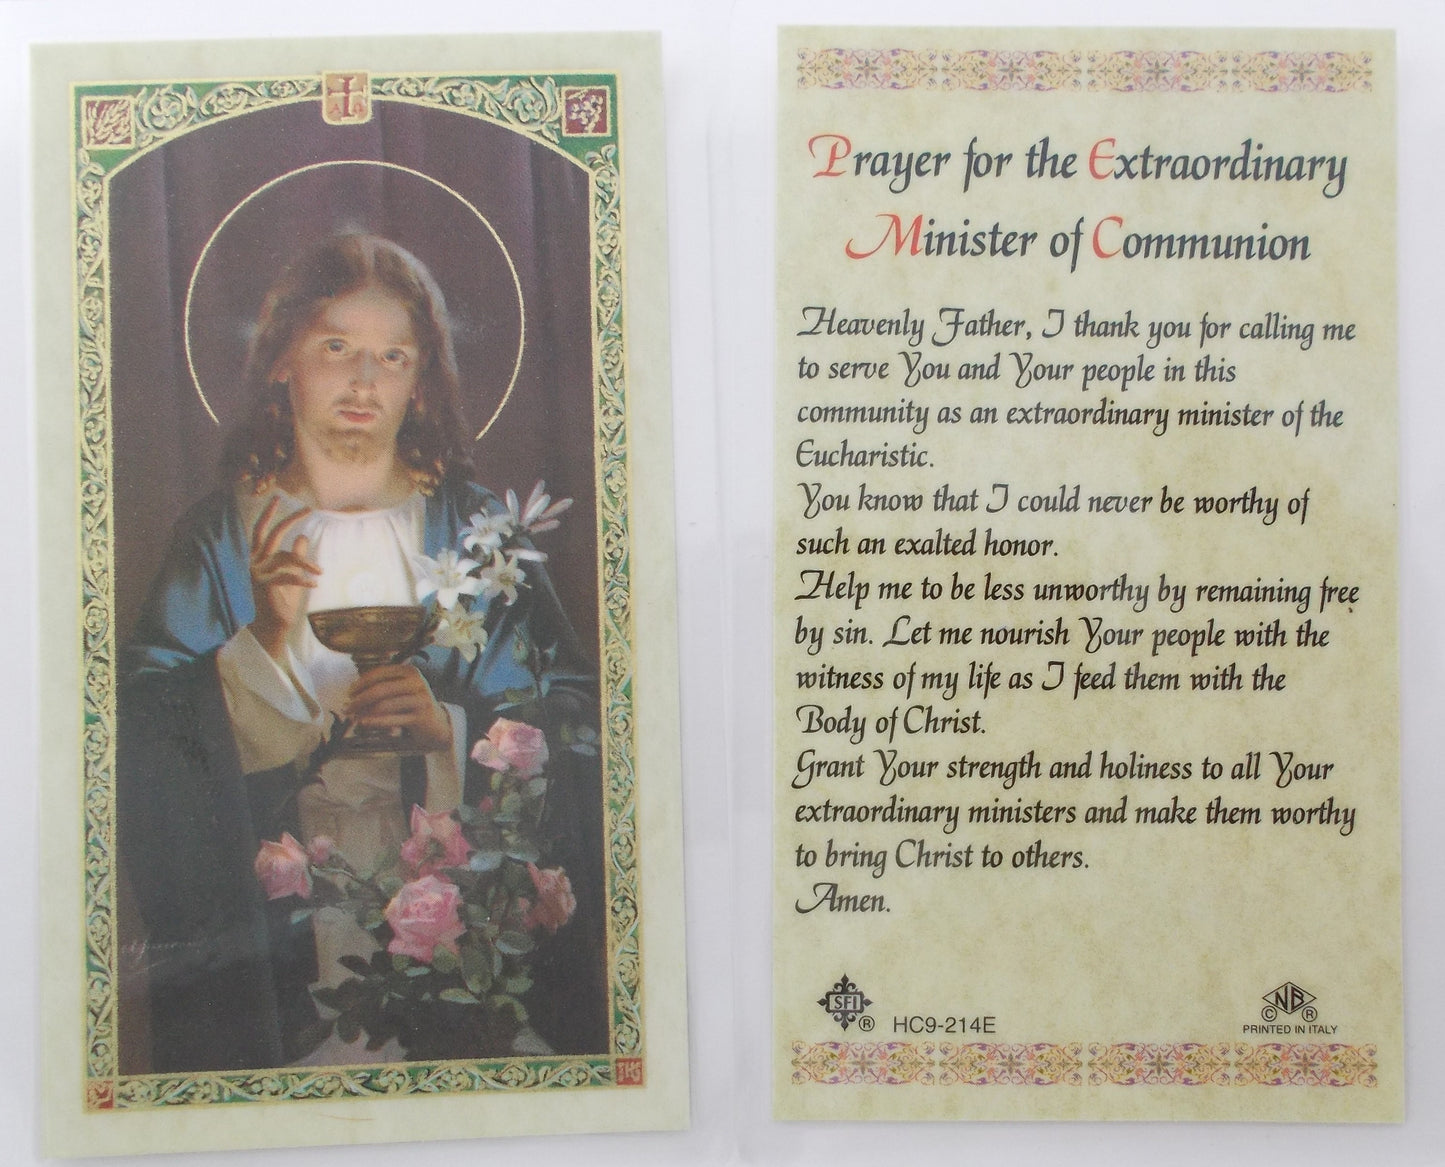 Prayer for the Extraordinary
Minister of Communion
Heavenly Father, I thank you for calling me
to serve You and Your people in this
community as an extraordinary minister of the
Eucharistic.
You know that I could never be worthy of
such an exalted honor.
Help me to be less unworthy by remaining free
by sin. Let me nourish Your people with the
witness of my life as I feed them with the
Body of Christ.
Grant Your strength and holiness to all Your
extraordinary ministers and make them worthy
to bring Christ to others.
Amen.
SFI ® HC9-214E
NB
© ®
PRINTED IN ITALY